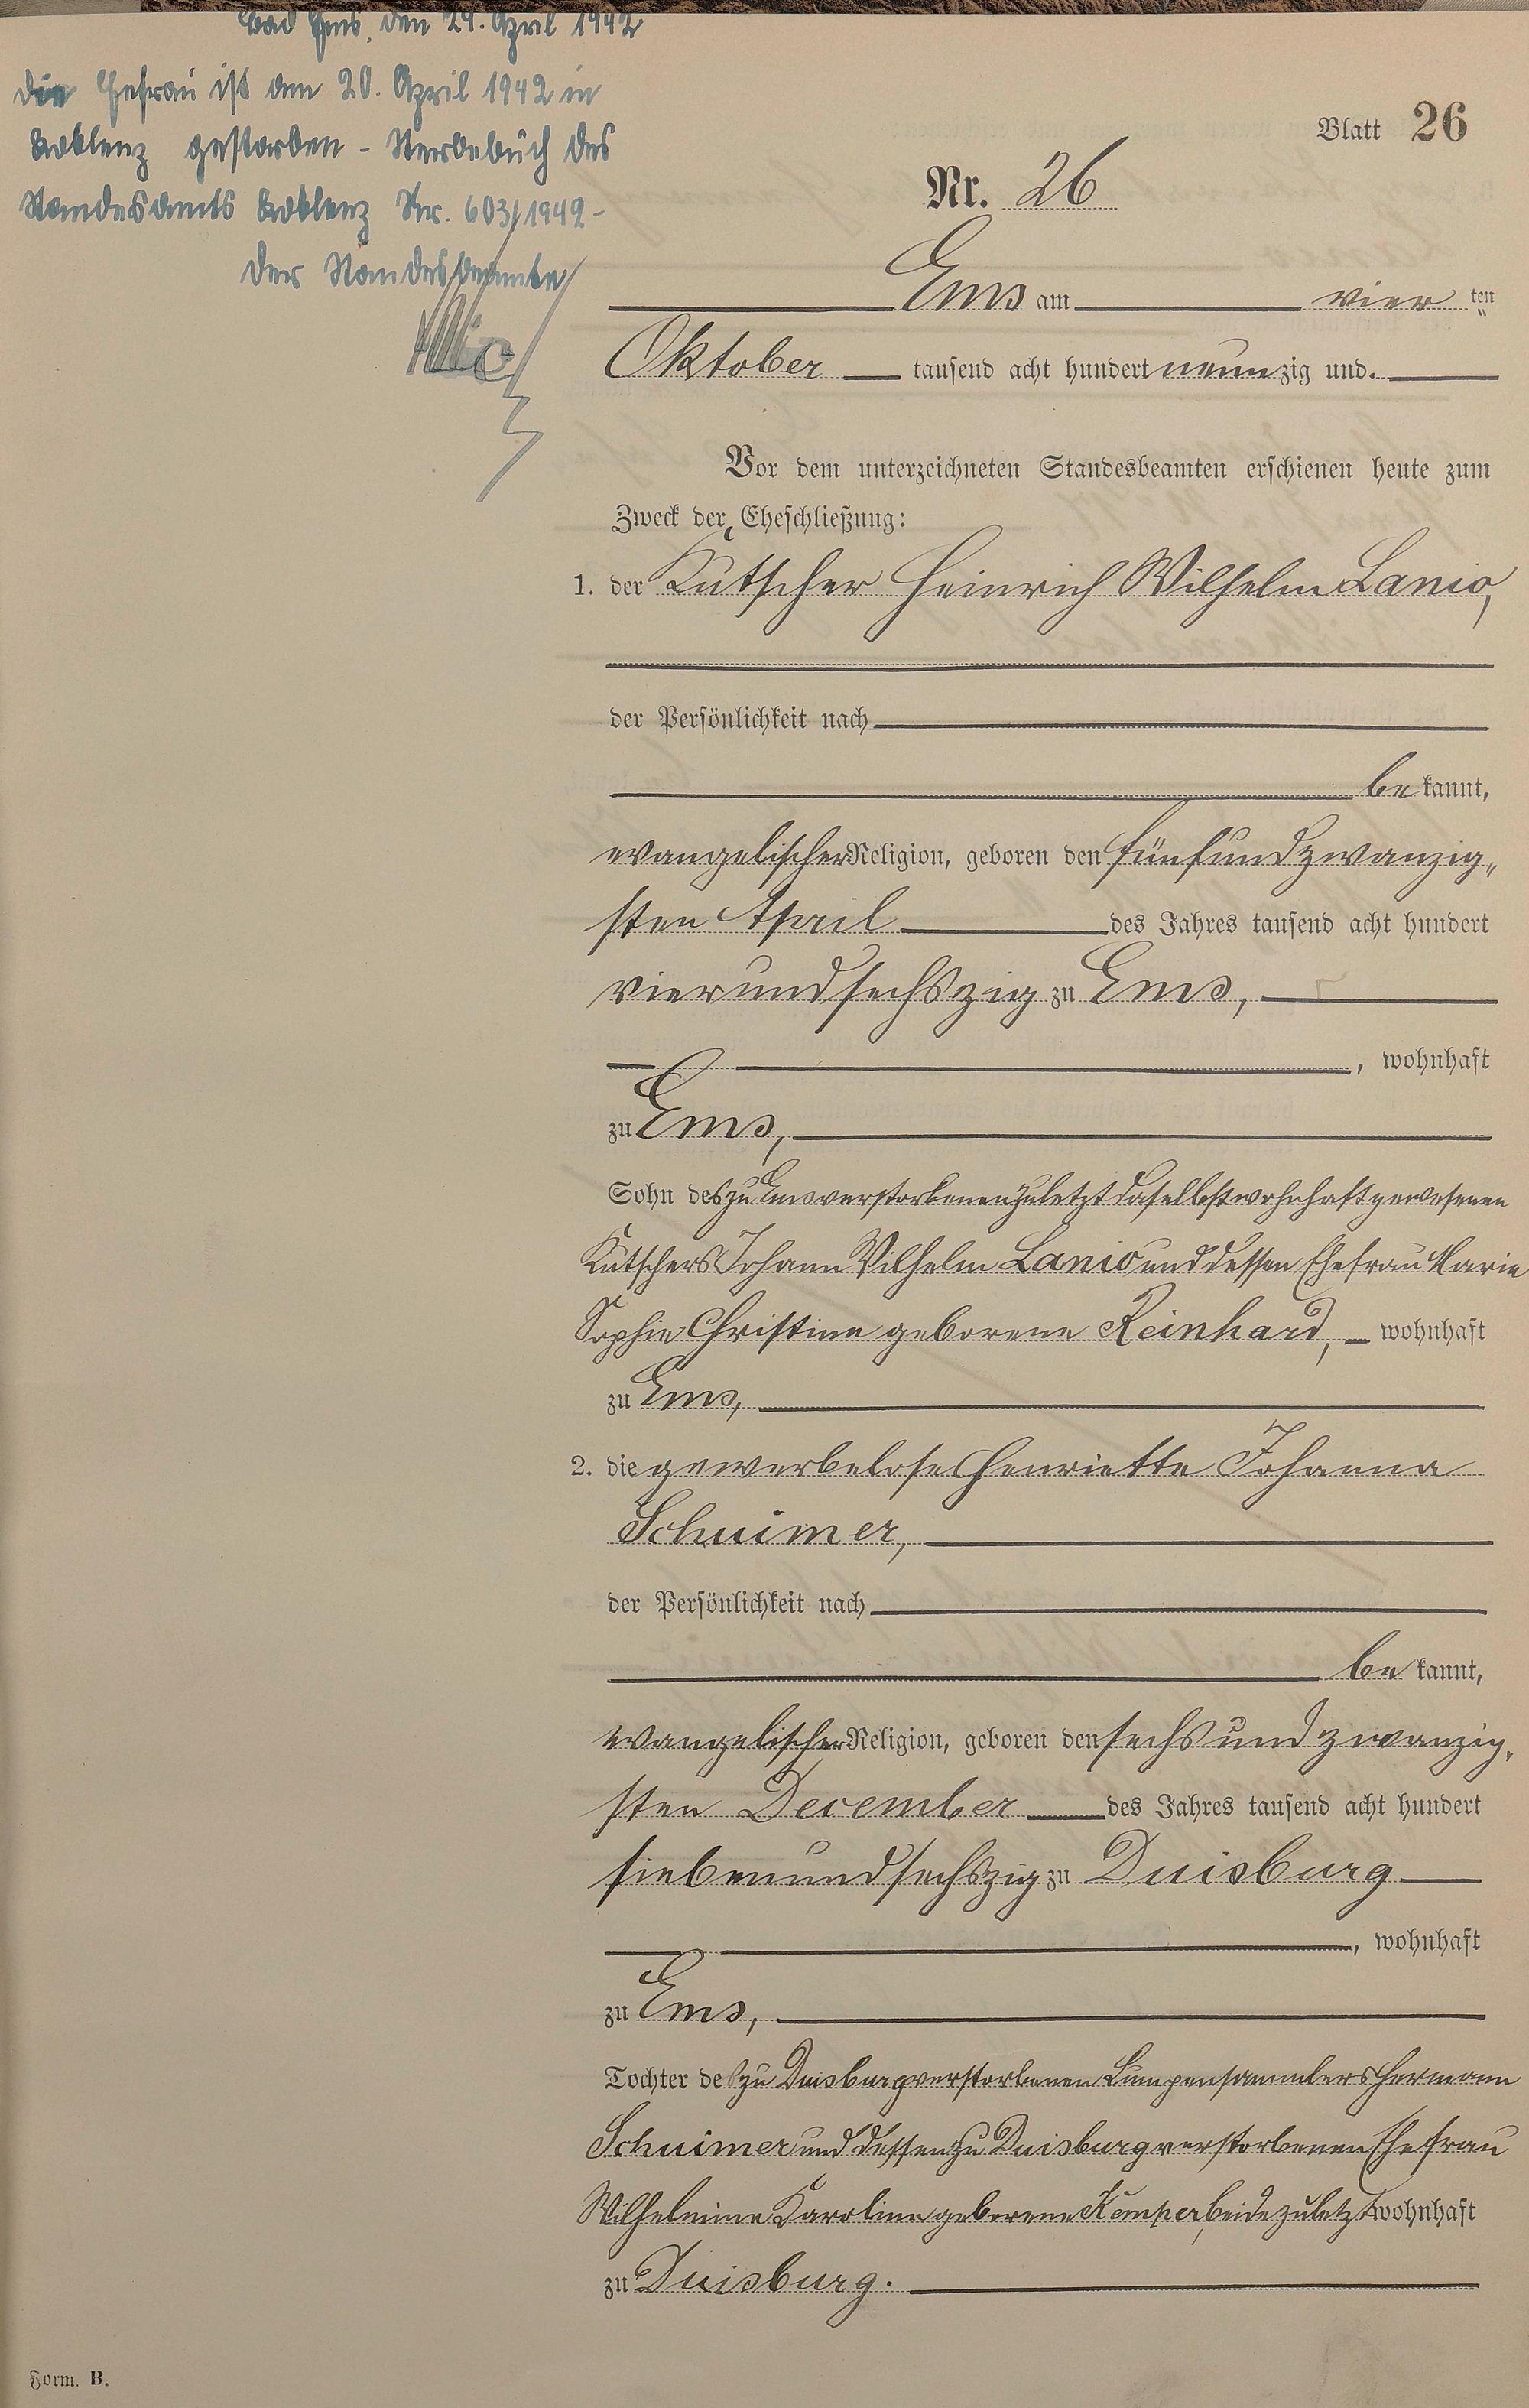 Bad Ems, den 24. April 1942
die Ehefrau ist am 20. April 1942 in
Koblenz gestorben - Sterbebuch des
Standesamts Koblenz Nr. 603/1942 -
Der Standesbeamte
Blatt 26
Nr. 26
Ems am vier ten
Oktober tausend acht hundert neunzig und.
Vor dem unterzeichneten Standesbeamten erschienen heute zum
Zweck der Eheschließung:
1. der Kutscher Heinrich Wilhelm Lanio,
der Persönlichkeit nach
be kannt,
evangelischer Religion, geboren den fünfundzwanzig„
sten April des Jahres tausend acht hundert
vierundsechszig zu Ems,
, wohnhaft
zu Ems,
Sohn des zu Ems verstorbenen zuletzt daselbst wohnhaft gewesenen
Kutschers Johann Wilhelm Lanio und dessen Ehefrau Marie
Sophie Christine geborene Reinhard, wohnhaft
zu Ems,
2. die gewerbelose Henriette Johanna
Schuimer,
der Persönlichkeit nach
be kannt,
evangelischer Religion, geboren den sechsundzwanzig„
sten December des Jahres tausend acht hundert
siebenundsechszig zu Duisburg
, wohnhaft
zu Ems,
Tochter des zu Duisburg verstorbenen Lumpensammlers Hermann
Schuimer und dessen zu Duisburg verstorbenen Ehefrau
Wilhelmine Karoline geborene Kemper, beide zuletzt wohnhaft
zu Duisburg.
Form. B.